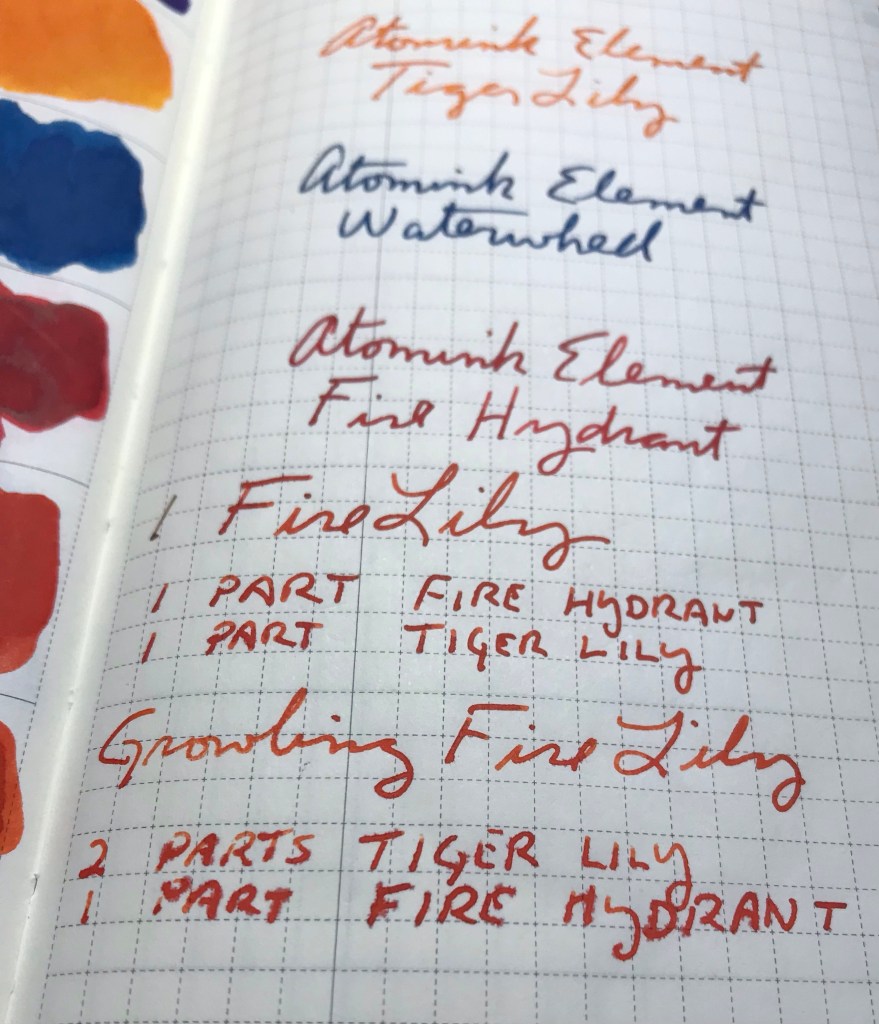 Atomink Element
Tiger Lily
Atomink Element
Waterwheel
Atomink Element
Fire Hydrant
1 Fire Lily
1 PART FIRE HYDRANT
1 PART TIGER LILY
Growling Fire Lily
2 PARTS TIGER LILY
1 PART FIRE HYDRANT